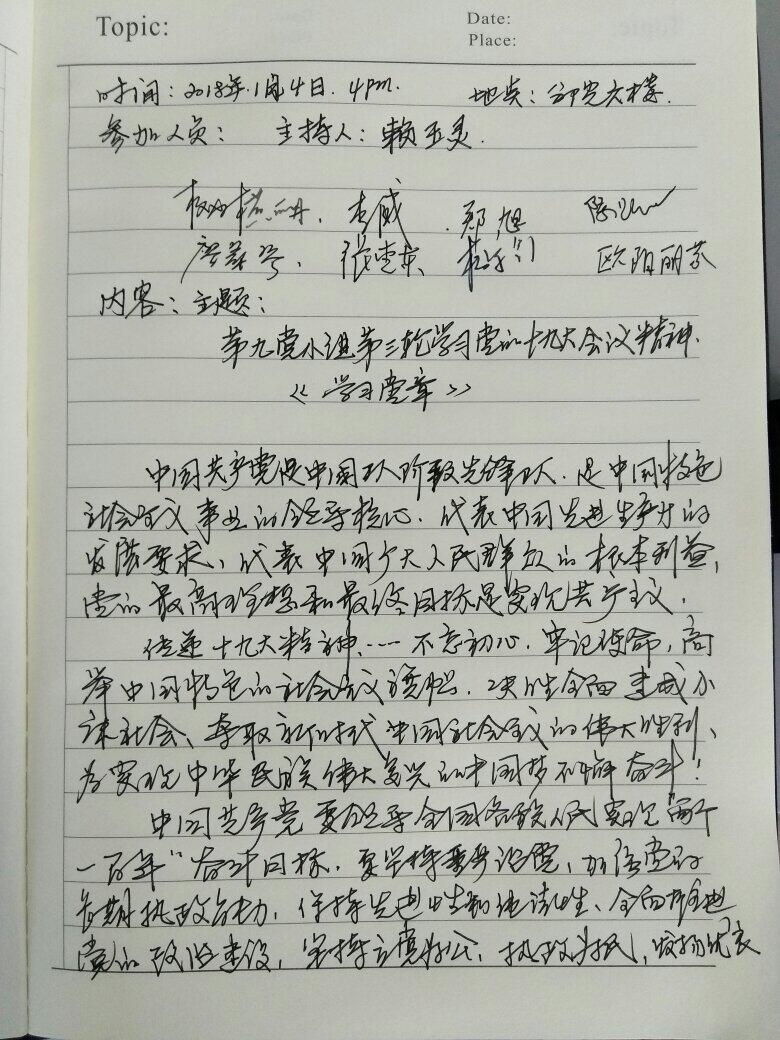 Topic:
Date:
Place:
时间：2018年.1月4日. 4pm. 地点：大楼.
参加人员： 主持人：赖玉灵.
杜威 郑旭
张奕东 欧阳丽芬
内容：主题：
第九党小组第三轮学习党的十九大会议精神.
《学习党章》
中国共产党是中国工人阶级先锋队.是中国特色
社会主义事业的领导核心.代表中国先进生产力的
发展要求、代表中国广大人民群众的根本利益,
党的最高理想和最终目标是实现共产主义.
传递十九大精神、……不忘初心.牢记使命,高
举中国特色的社会主义旗帜.决胜全面建成小
康社会、夺取新时代中国社会主义的伟大胜利、
为实现中华民族伟大复兴的中国梦不懈奋斗!
中国共产党要领导全国各族人民实现"两个
一百年"奋斗目标.要坚持要从严治党,加强党的
长期执政能力、保持先进性和纯洁性、全面推进
党的政治建设,坚持立党为公、执政为民,发扬优良